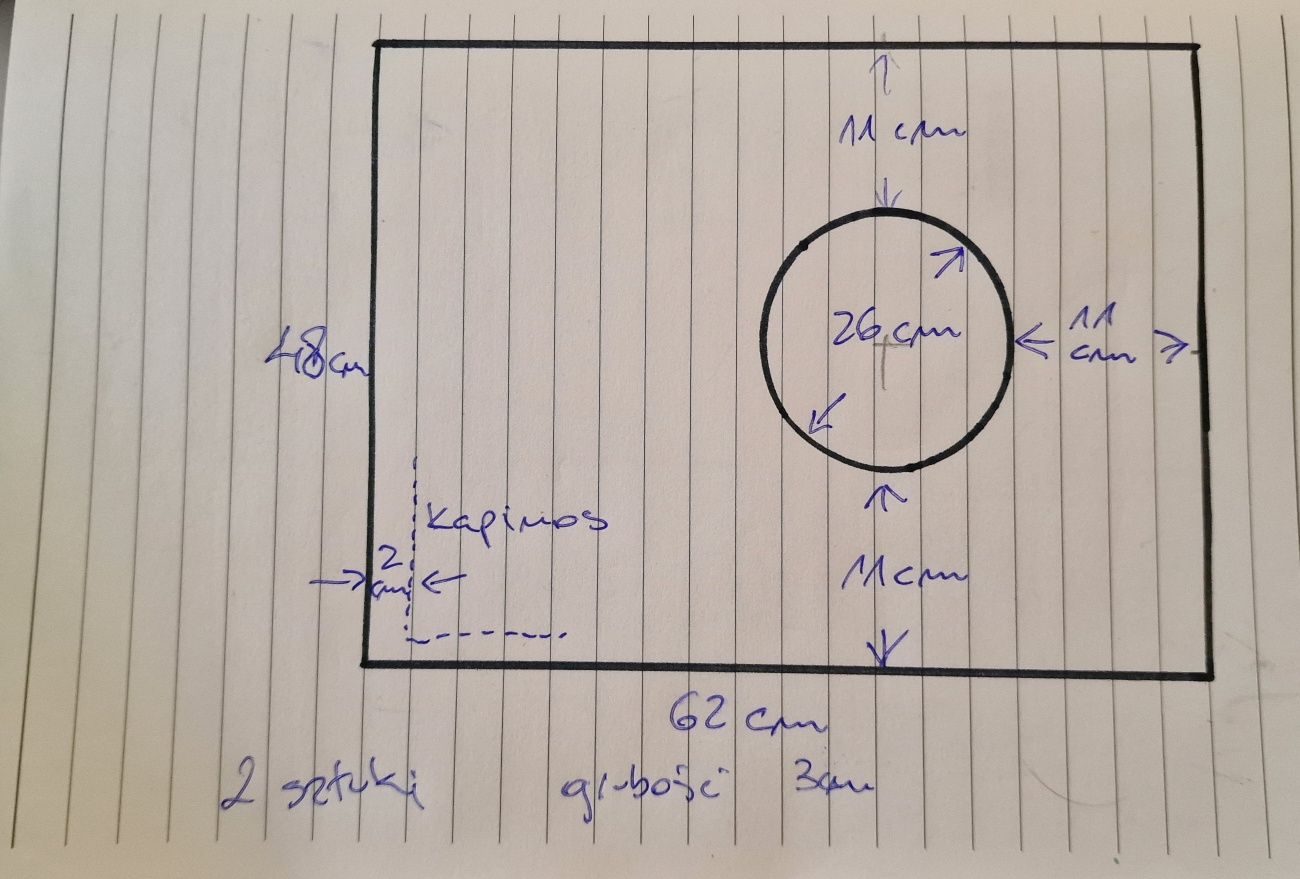 11 cm
26 cm
11
cm
48cm
kapinos
2
cm
11cm
62 cm
2 sztuki grubość 3cm